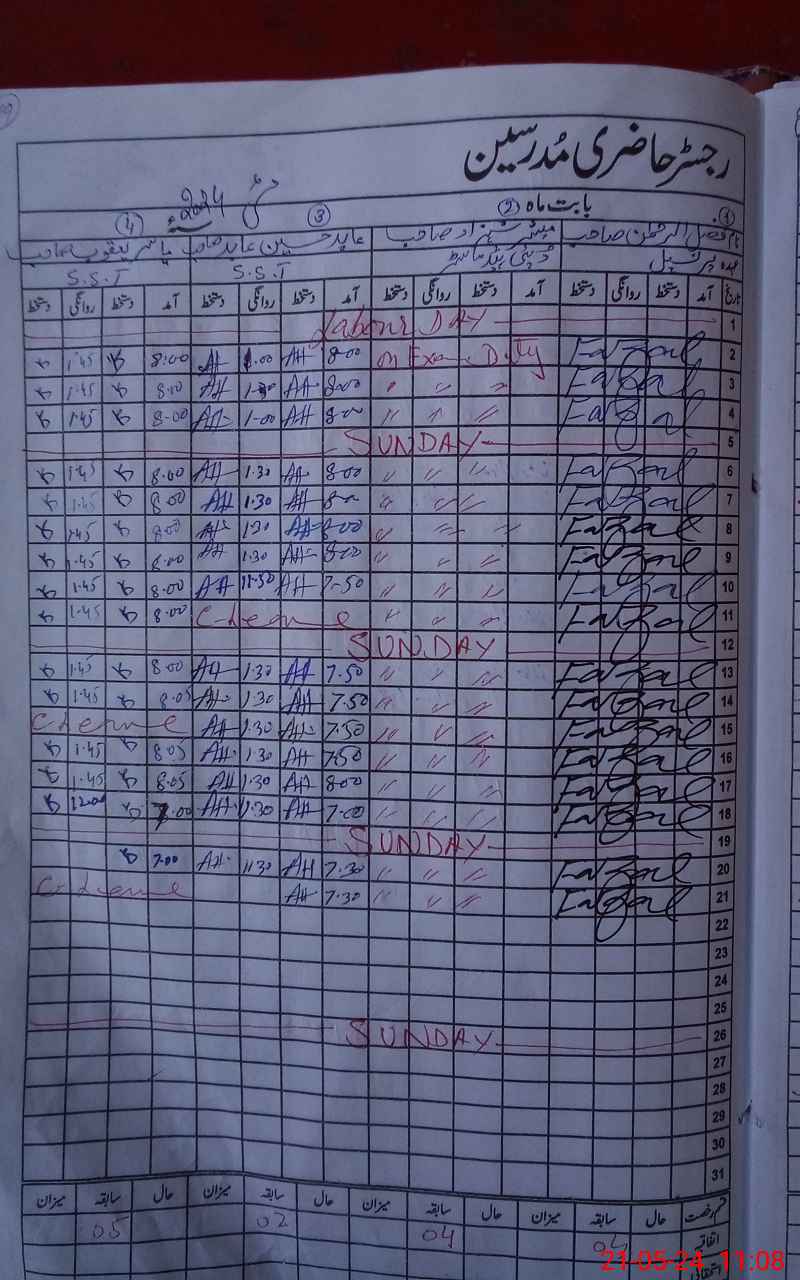 رجسٹر حاضری مدرسین
بابت ماہ مئی 2024ء
① ② ③ ④
نام فضل الرحمٰن صاحب مبشر شہزاد صاحب عابد حسین عابد صاحب یاسر یعقوب صاحب
عہدہ پرنسپل ڈپٹی ہیڈ ماسٹر S.S.T S.S.T
تاریخ آمد دستخط روانگی دستخط آمد دستخط روانگی دستخط آمد دستخط روانگی دستخط آمد دستخط روانگی دستخط
1 Labour DAY
2 Fazal on Exam Duty 8.00 AH 1.00 AH 8.00 1.45
3 Fazal 〃 〃 〃 8.00 AH 1.30 AH 8.00 1.45
4 Fazal 〃 〃 〃 8.00 AH 1-00 AH 8.00 1.45
5 SUNDAY
6 Fazal 〃 〃 〃 8.00 AH 1.30 AH 8.00 1.45
7 Fazal 〃 〃 8.00 AH 1.30 AH 8.00 1.45
8 Fazal 〃 〃 〃 8.00 AH 1.30 AH 8.00 1.45
9 Fazal 〃 〃 〃 8.00 AH 1.30 AH 8.00 1.45
10 Fazal 〃 〃 〃 7.50 AH 11.50 AH 8.00 1.45
11 Fazal 〃 〃 〃 C-Leave 8.00 1.45
12 SUNDAY
13 Fazal 〃 〃 〃 7.50 AH 1.30 AH 8.00 1.45
14 Fazal 〃 〃 〃 7.50 AH 1.30 AH 8.05 1.45
15 Fazal 〃 〃 〃 7.50 AH 1.30 AH C-Leave
16 Fazal 〃 〃 〃 7.50 AH 1.30 AH 8.05 1.45
17 Fazal 〃 〃 〃 8.00 AH 1.30 AH 8.05 1.45
18 Fazal 〃 〃 〃 7.00 AH 1.30 AH 7.00 12.00
19 SUNDAY
20 Fazal 〃 〃 〃 7.30 AH 11.30 AH 7.00
21 Fazal 〃 〃 〃 7.30 AH C-Leave
22
23
24
25
26 SUNDAY
27
28
29
30
31
قسم رخصت حال سابقہ میزان حال سابقہ میزان حال سابقہ میزان حال سابقہ میزان
اتفاقیہ 04 04 02 05
21-05-24 11:08